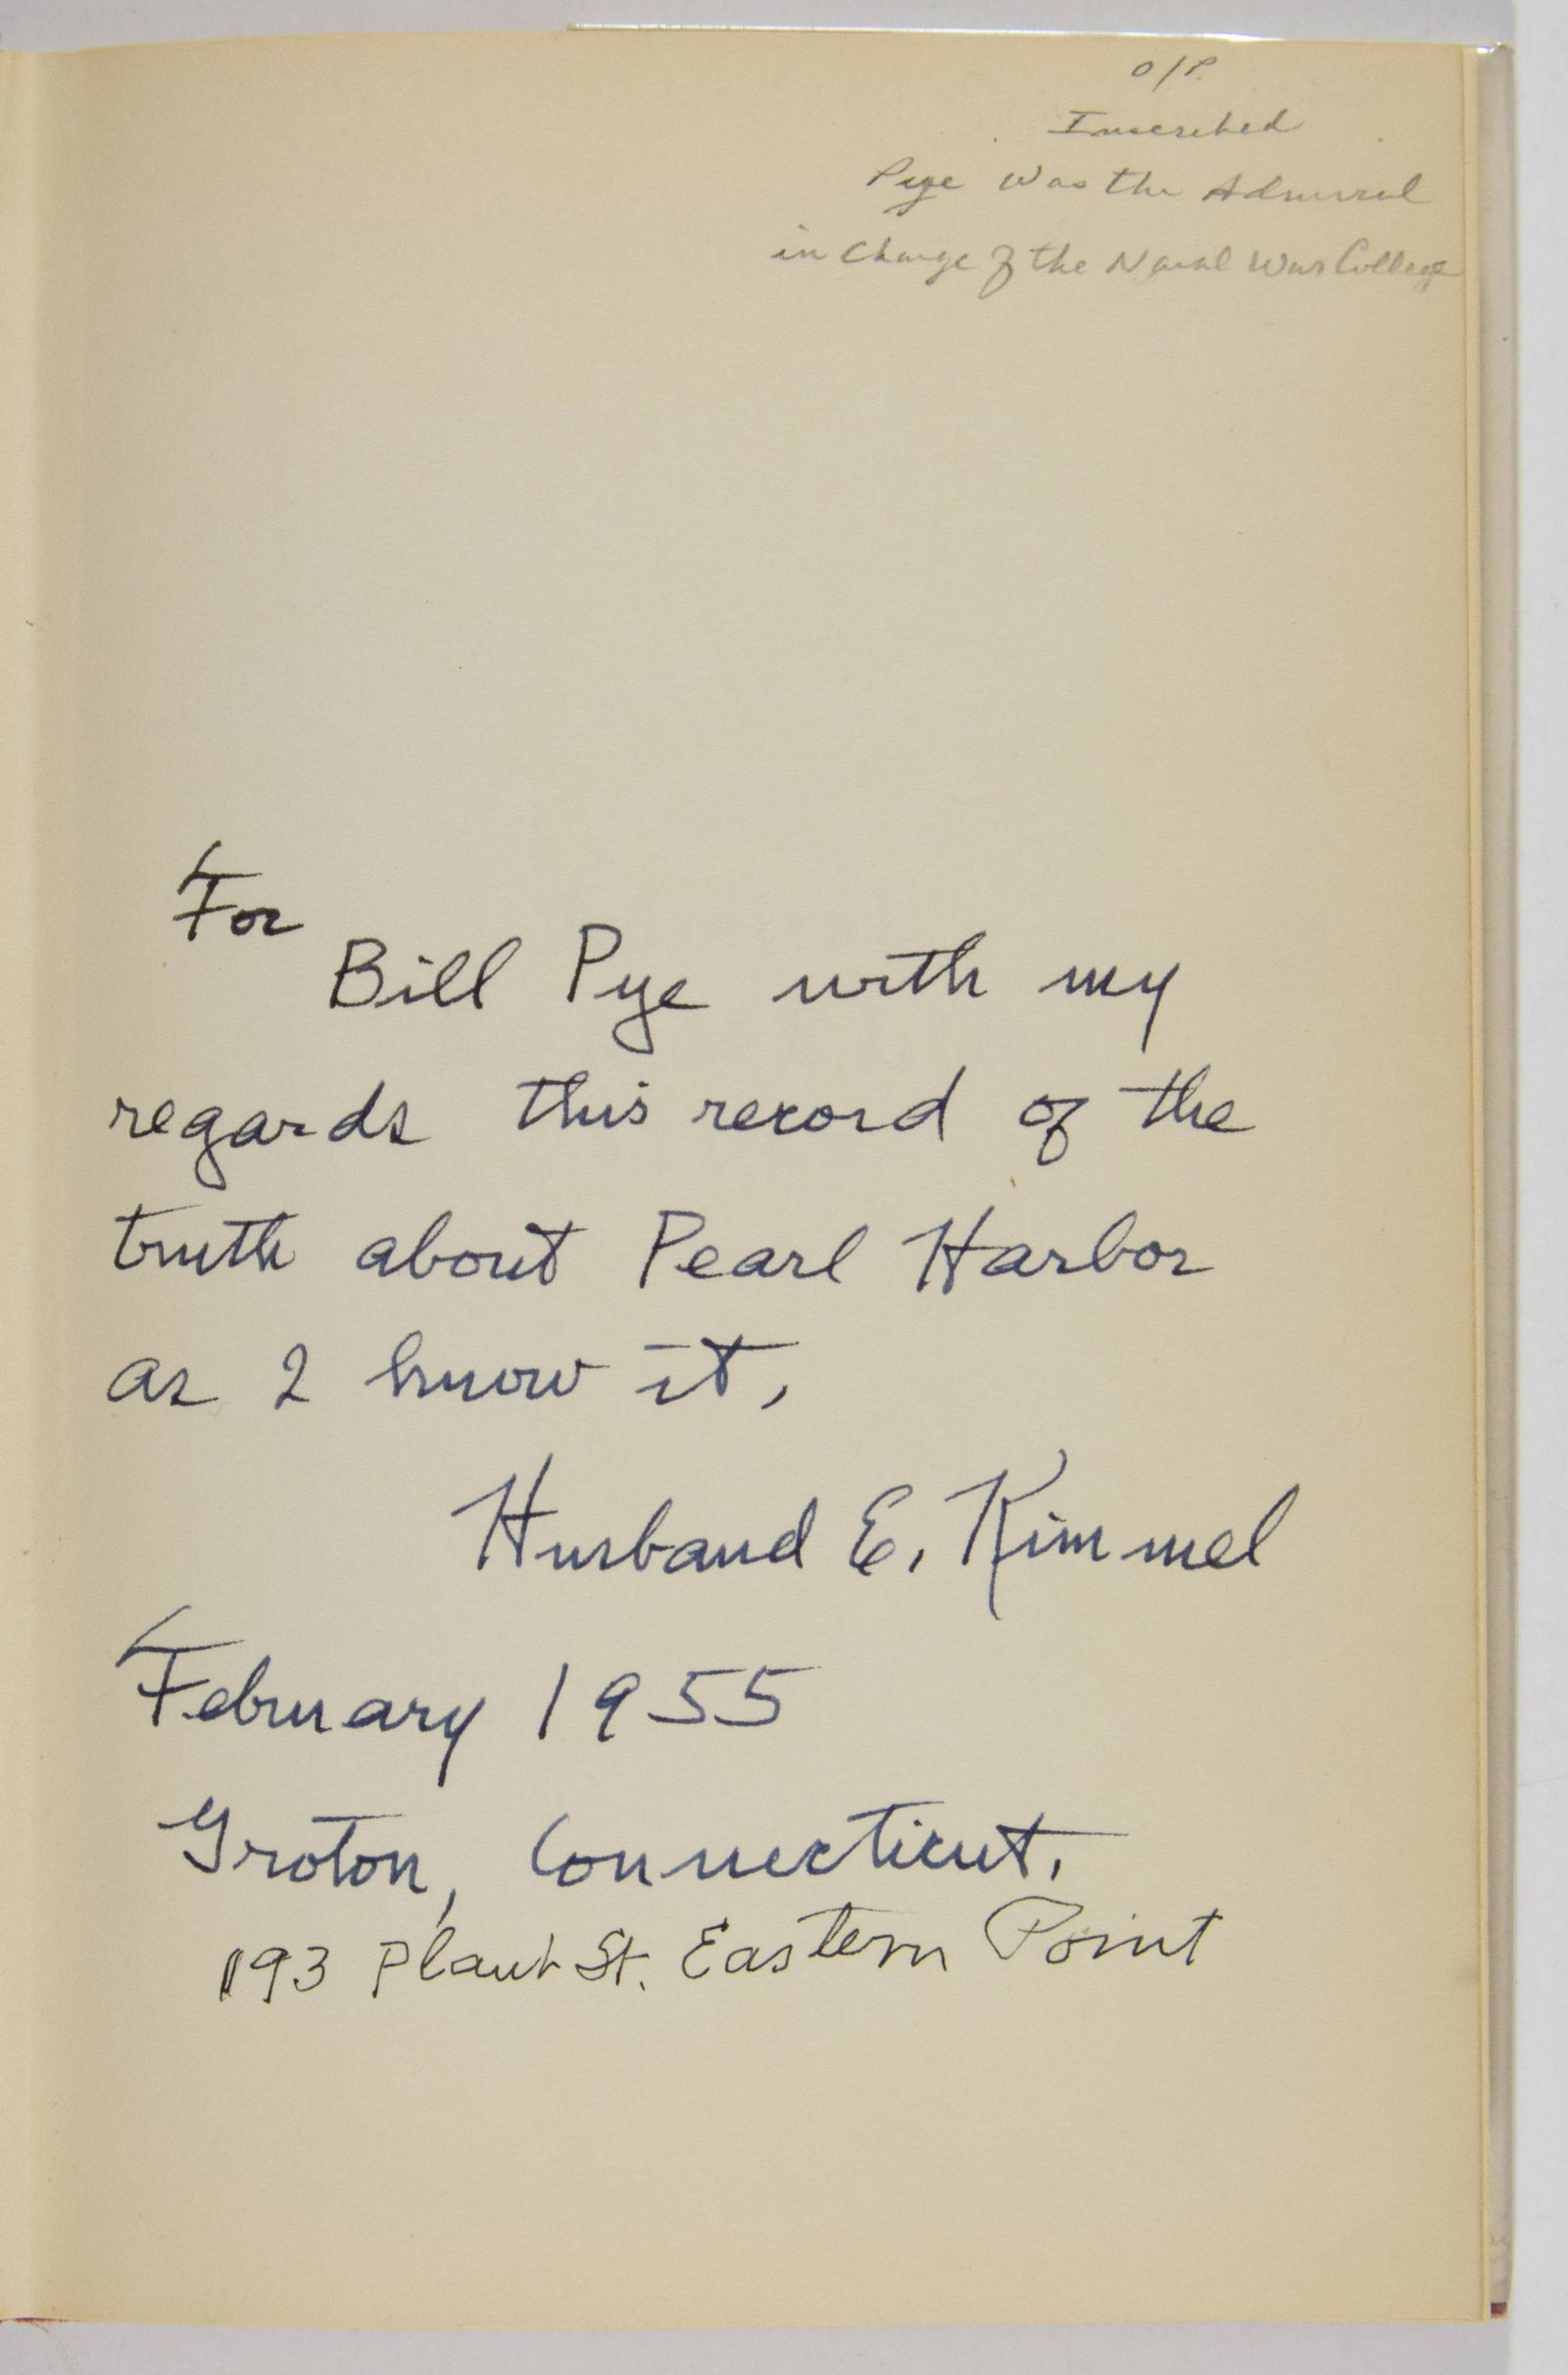 O/P.
Inscribed
Pye Was the Admiral
in Charge of the Naval War College
For
Bill Pye with my
regards this record of the
truth about Pearl Harbor
as I know it,
Husband E. Kimmel
February 1955
Groton, Connecticut.
193 Plant St. Eastern Point